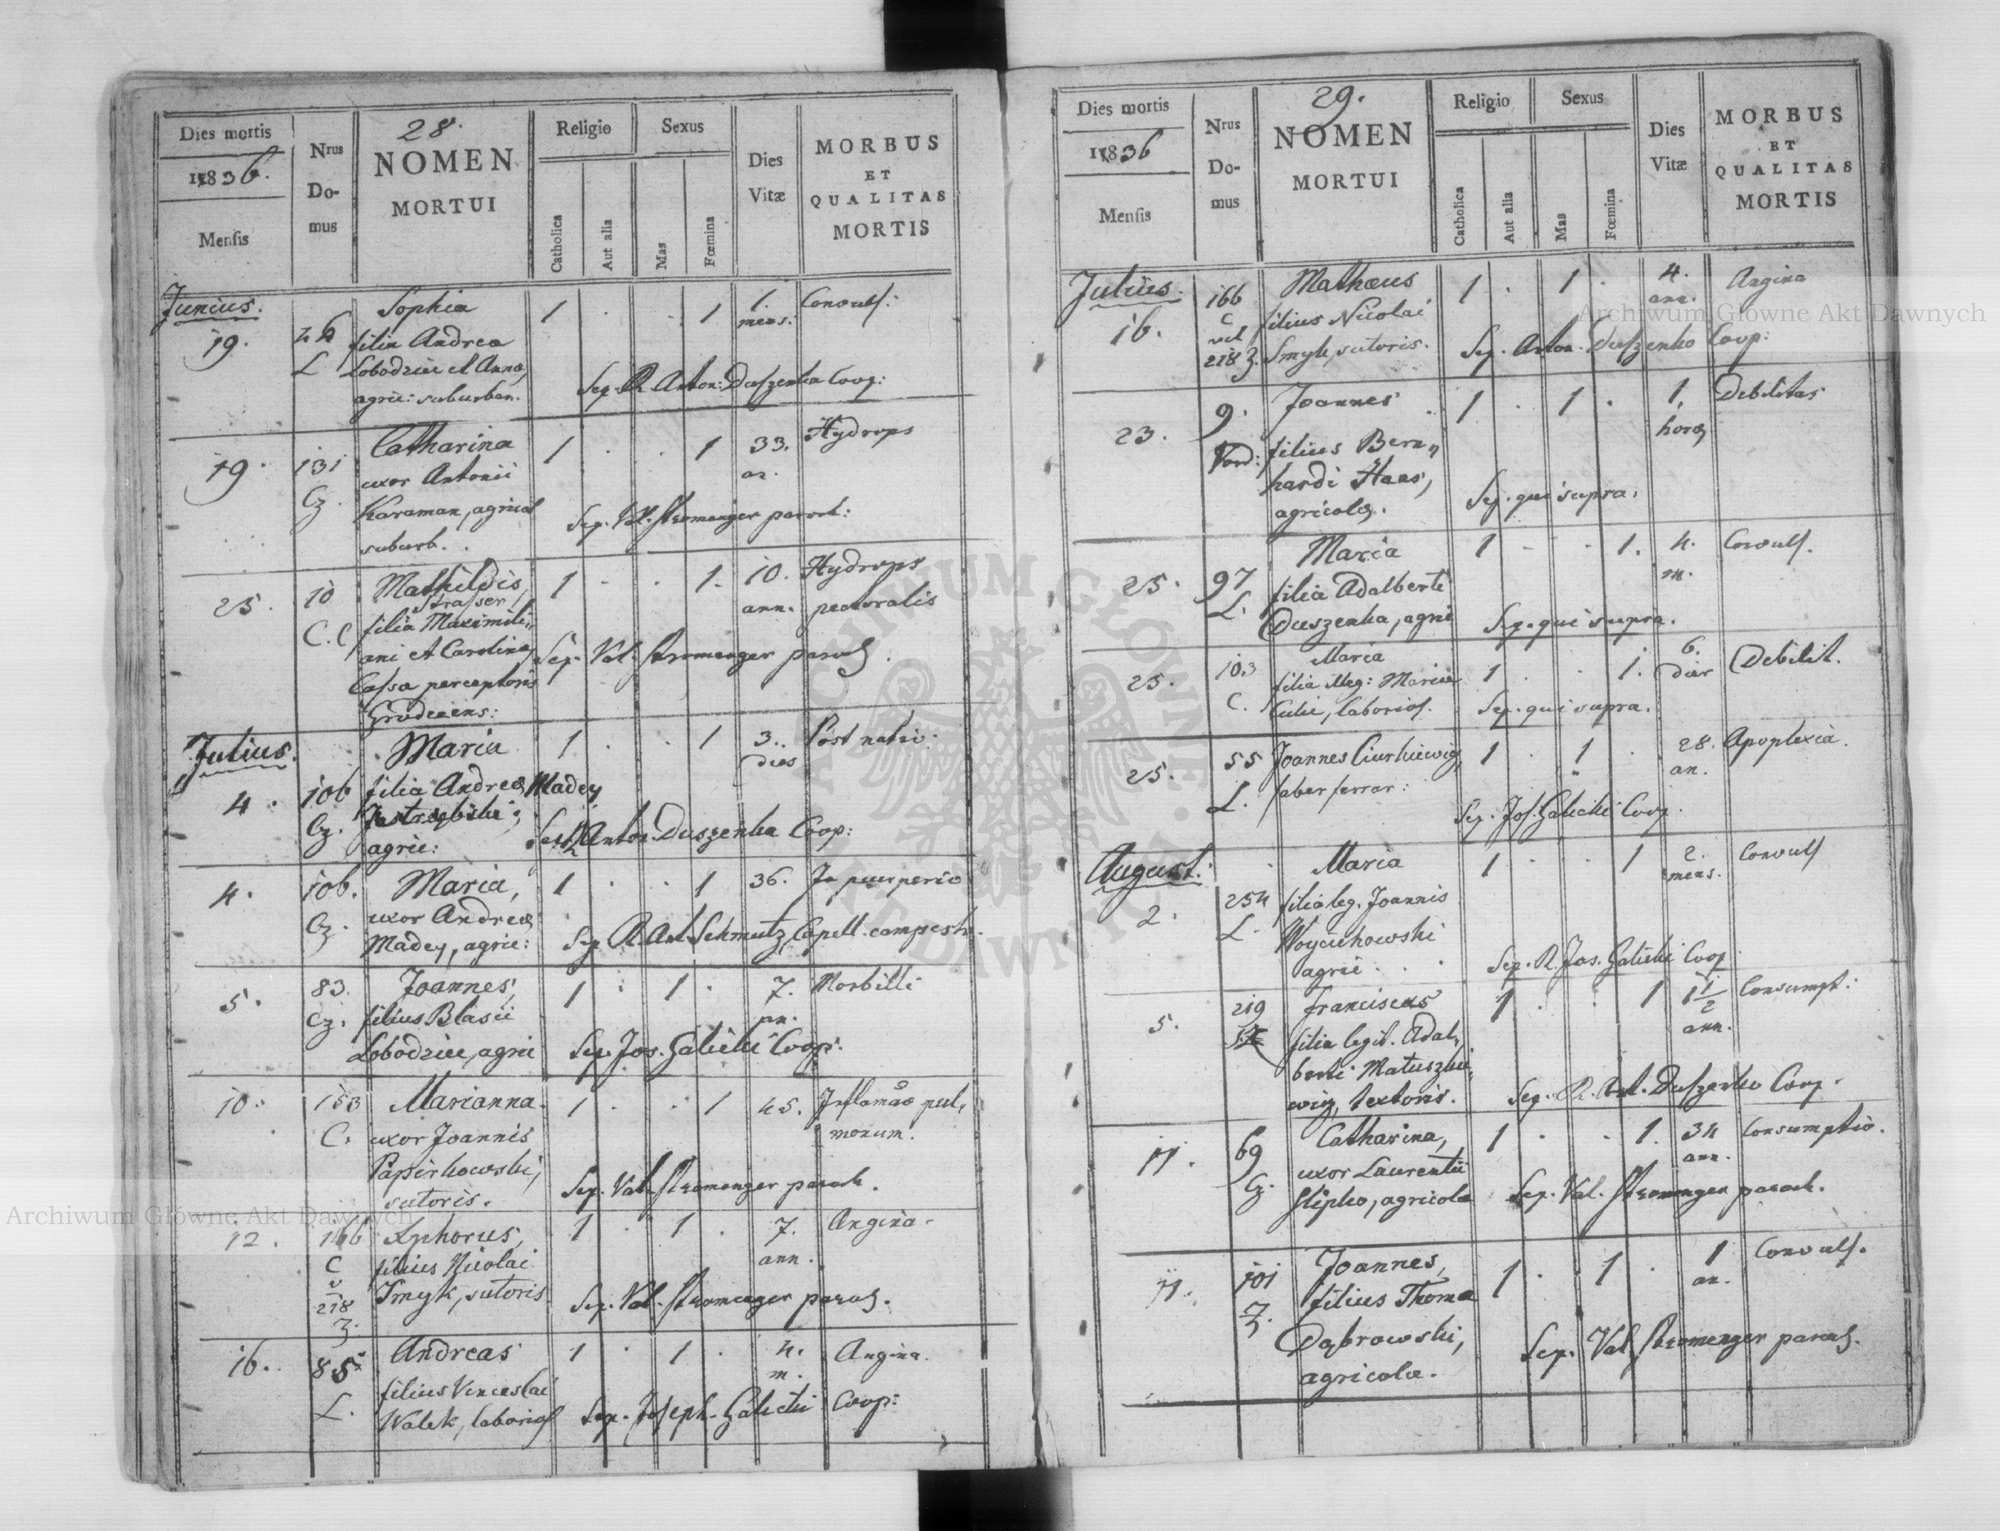 28.
Dies mortis
1836.
Mensis
Nrus
Do-
mus
NOMEN
MORTUI
Religio
Catholica
Aut alia
Sexus
Mas
Fœmina
Dies
Vitæ
MORBUS
ET
QUALITAS
MORTIS
Junius.
19.
L
Sophia
filia Andreæ
Lobodziec et Anna,
agric: suburban.
1 . . 1
1.
mens.
Convuls:
Sep. R. Anton: Duszenko Coop:
19.
131
Cz.
Catharina
uxor Antonii
Karaman, agricol
suburb.
1 . . 1
33.
an.
Hydrops
Sep. Val. Stromenger paroch:
25.
10
C.C
Mathildis,
Strasser
filia Maximili,,
ani et Carolina
Cassæ perceptoris
Grodecens:
1 . . 1.
10.
ann.
Hydrops
pectoralis
Sep. Val. Stromenger paroch.
Julius.
4.
106
Cz.
Maria
filia Andreæ Madey
agric:
1 . . 1
3..
dies
Post nativ:
Anton. Duszenko Coop:
4.
106.
Cz.
Maria,
uxor Andreæ
Madey, agric:
1 . . 1
36.
In puerperio
Sep. R. Ant. Schmutz, Capell. campestr.
5.
83.
Cz.
Joannes,
filius Blasii
Lobodziec, agric
1 . 1 .
7.
an.
Morbilli
Sep. Jos. Galicki Coop:
10.
153
C.
Marianna
uxor Joannis
Papirkowski,
sutoris.
1 . . 1
45.
Inflamao pul,
monum.
Sep. Val. Stromenger paroch.
12.
166
C
v
218
Z.
filius Nicolai
Smyk, sutoris
1 . 1 .
7.
ann.
Angina.
Sep. Val. Stromenger paroch.
16.
85
L.
Andreas
filius Venceslai
Walek, laborios
1 . 1 .
4.
m.
Angina.
Sep. Joseph. Galicki Coop:
29.
Dies mortis
1836
Mensis
Nrus
Do-
mus
NOMEN
MORTUI
Religio
Catholica
Aut alia
Sexus
Mas
Fœmina
Dies
Vitæ
MORBUS
ET
QUALITAS
MORTIS
Julius.
16.
166
C
vel
218 Z.
Mathæus
filius Nicolai
Smyk, sutoris.
1 . 1 .
4.
ann.
Angina
Sep. Anton. Duszenko Coop:
23.
9.
Vord:
Joannes
filius Bern,,
hardi Haas,
agricolæ.
1 . 1 .
1.
horæ
Debilitas
Sep. qui supra.
25.
97
L.
Maria
filia Adalberti
Duszenka, agric
1 . . 1.
4.
m.
Convuls.
Sep. qui supra.
25.
103
C.
Maria
filia illeg: Mariæ
laborios.
1 . . 1.
6.
dier
Debilit.
Sep. qui supra.
25.
55
L.
Joannes Ciurkiewicz
faber ferrar:
1 . 1 .
28.
an.
Apoplexia.
Sep. Jos. Galicki Coop.
August:
2.
254
L.
Maria
filia leg. Joannis
Woyciechowski
agric . . .
1 . . 1
2.
mens.
Convuls
Sep. R. Jos. Galicki Coop.
5.
219
Franciscus
filia legit. Adal,
berti Matuszkie,
wicz, textoris.
1 . . 1
1 1/2
ann.
Consumpt:
Sep. R. Ant. Duszenko Coop.
11.
69
Cz.
Catharina,
uxor Laurentii
Slipko, agricolæ
1 . . 1.
34
ann.
Consumptio.
Sep. Val. Stromenger paroch.
11.
101
Z.
Joannes,
filius Thomæ
Dąbrowski,
agricolæ.
1 . 1 .
1
an.
Convuls.
Sep. Val. Stromenger paroch.
Archiwum Główne Akt Dawnych
Archiwum Główne Akt Dawnych
ARCHIWUM GŁÓWNE AKT DAWNYCH